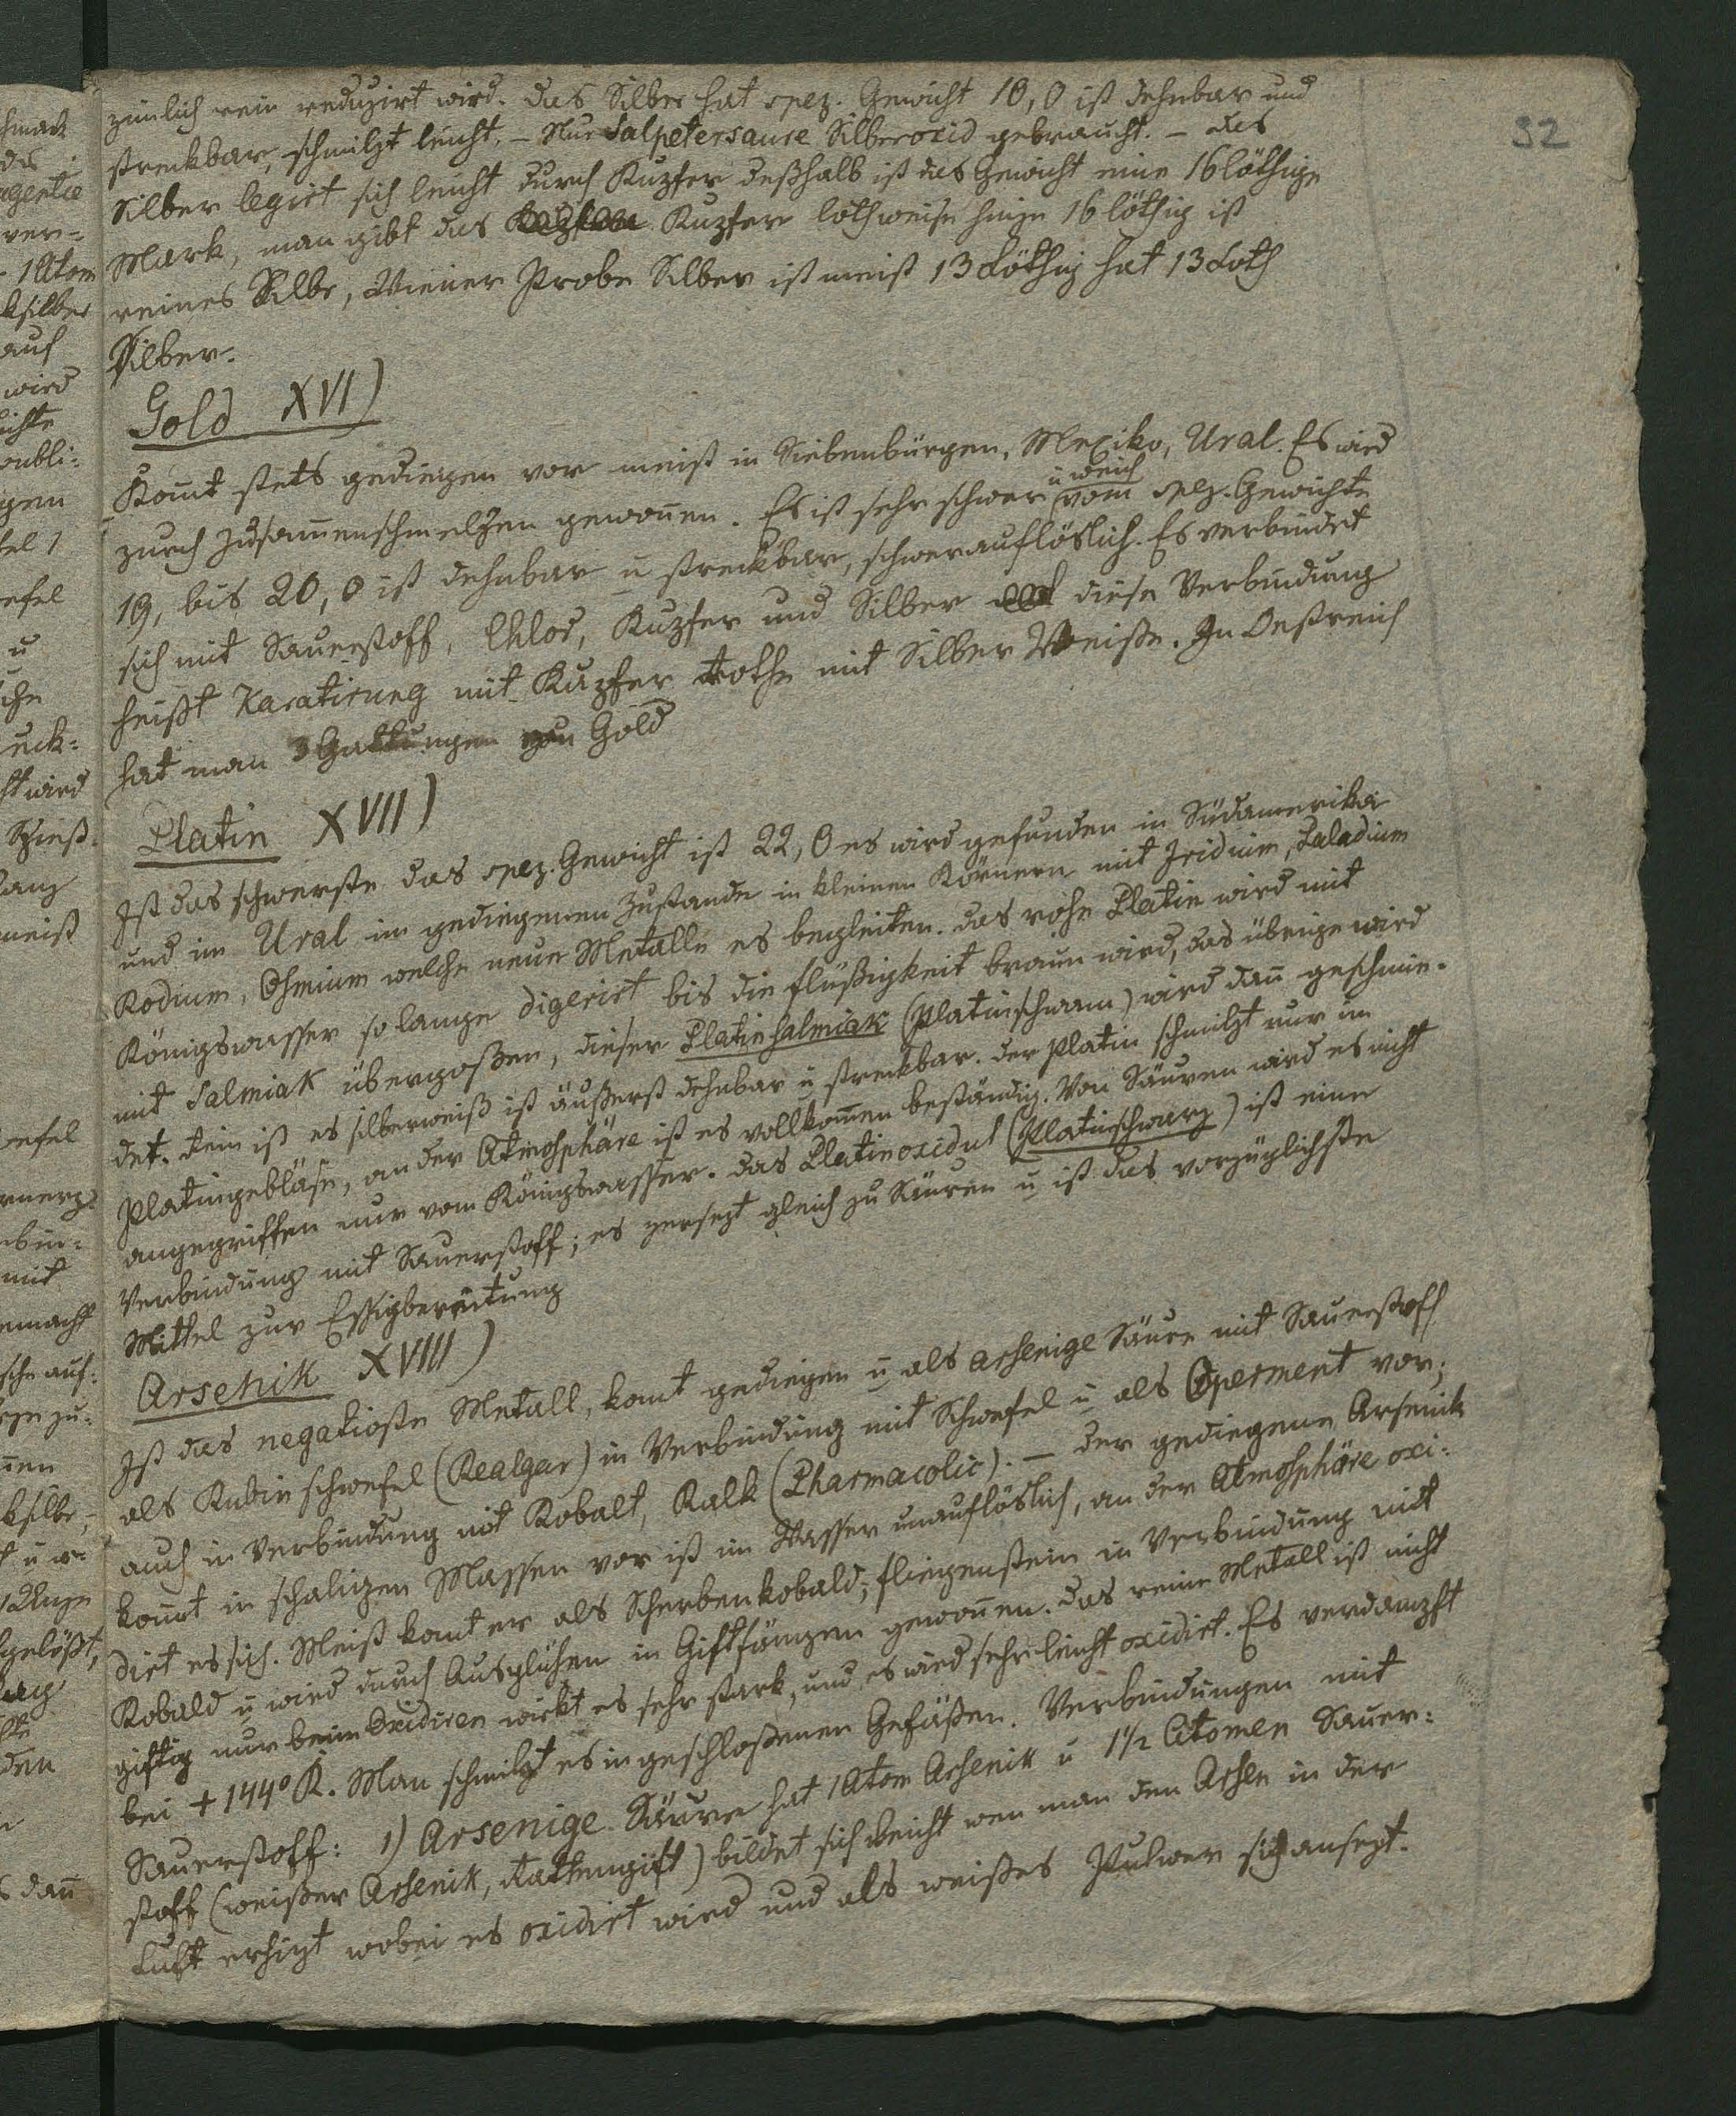 32
zimlich rein reduzirt wird. Das Silber hat spez. Gewicht 10,0 ist dehnbar und
streckbar, schmilzt leicht. – Nur Salpetersaure Silberoxid gebraucht. – das
Silber legirt sich leicht durch Kupfer deßhalb ist das Gewicht eine 16löthige
Mark, man gibt das Kupfer lothweise hinzu 16 löthig ist
reines Silbr, Wiener Probe Silber ist meist 13 Löthig hat 13 Loth
Silber.
Gold XVI)
Kom̄t stets gediegen vor meist in Siebenbürgen, Mexiko, Ural. Es wird
zurch Zusam̄enschmelzen gewon̄en. Es ist sehr schwer u weich vom spez. Gewichte
19, bis 20,0 ist dehnbar u streckbar, schwerauflöslich. Es verbindet
sich mit Sauerstoff, Chlor, Kupfer und Silber diese Verbindung
heißt Karatirung mit Kupfer rothe mit Silber Weiße. In Oestreich
hat man 3 Gattungen von Gold
Platin XVII)
Ist das schwerste das spez. Gewicht ist 22,0 es wird gefunden in Südamerika
und im Ural im gediegenen Zustande in kleinen Körnern mit Iridium, Paladium
Rodium, Osmium welche neue Metalle es begleiten. Das rohe Platin wird mit
Königswasser so lange digerirt bis die Flüßigkeit braun wird, das übrige wird
mit Salmiak übergoßen, dieser Platinsalmiak (Platinschwam) wird dan̄ geschmie-
det. Rein ist es silberweiß ist äußerst dehnbar u streckbar. Der Platin schmilzt nur im
Platingebläse, an der Atmosphäre ist es vollkom̄en beständig. Von Säuren wird es nicht
angegriffen nur vom Königswasser. Das Platinoxidul (Platinschwarz) ist eine
Verbindung mit Sauerstoff; es zersezt gleich zu Säuren u ist das vorzüglichste
Mittel zur Essigbereitung
Arsenik XVIII)
Ist das negativste Metall, kom̄t gediegen u als arsenige Säure mit Sauerstoff
als Rubin schwefel (Realgar) in Verbindung mit Schwefel u als Operment vor;
auch in Verbindung mit Kobalt, Kalk (Pharmacolit). – Der gediegene Arsenik
kom̄t in schaligen Massen vor ist im Wasser unauflöslich, an der Atmosphäre oxi-
dirt es sich. Meist kom̄t er als Scherbenkobald, Fliegenstein in Verbindung mit
Kobald u wird durch Ausglühen in Giftfängen gewon̄en. Das reine Metall ist nicht
giftig nur beim Oxidiren wirkt es sehr stark, und es wird sehr leicht oxidirt. Es verdampft
bei +144° R. Man schmilzt es in geschloßenen Gefäßen. Verbindungen mit
Sauerstoff: 1) Arsenige Säure hat 1 Atom Arsenik u 1½ Atomen Sauer-
stoff (weißer Arsenik, Rattengift) bildet sich leicht wen man den Arsen in der
Luft erhizt wobei es oxidirt wird und als weißes Pulver sich ansezt.